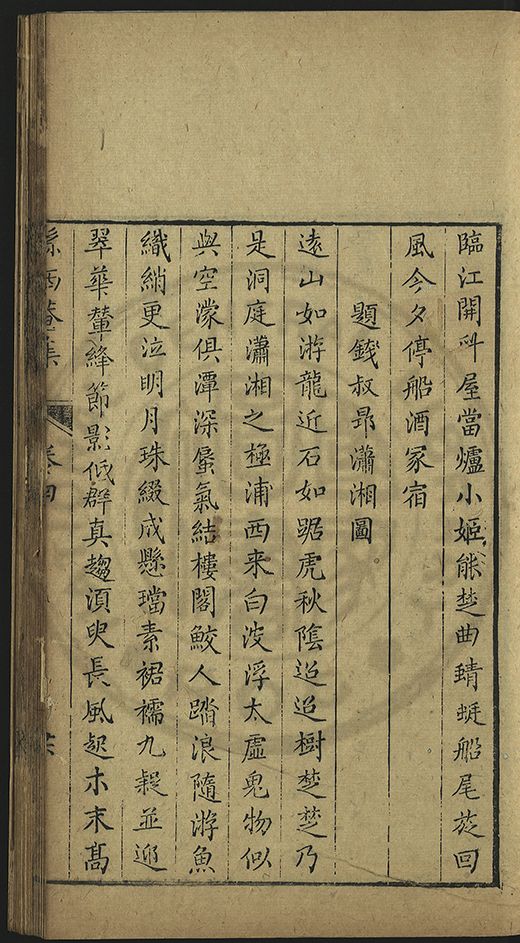 臨江開斗屋當爐小姬能楚曲蜻蜓船尾旋回
風今夕停船酒家宿
題錢叔昻瀟湘圖
遠山如游龍近石如踞虎秋隂迢迢樹楚楚乃
是洞庭瀟湘之極浦西来白波浮太虛鬼物似
與空濛俱潭深蜃氣結樓閣鮫人踏浪隨游魚
織綃更泣明月珠綴成懸璫素裙襦九疑並迎
翠華輦絳節影低群真趨湏臾長風起木末髙
孫西菴集
卷四